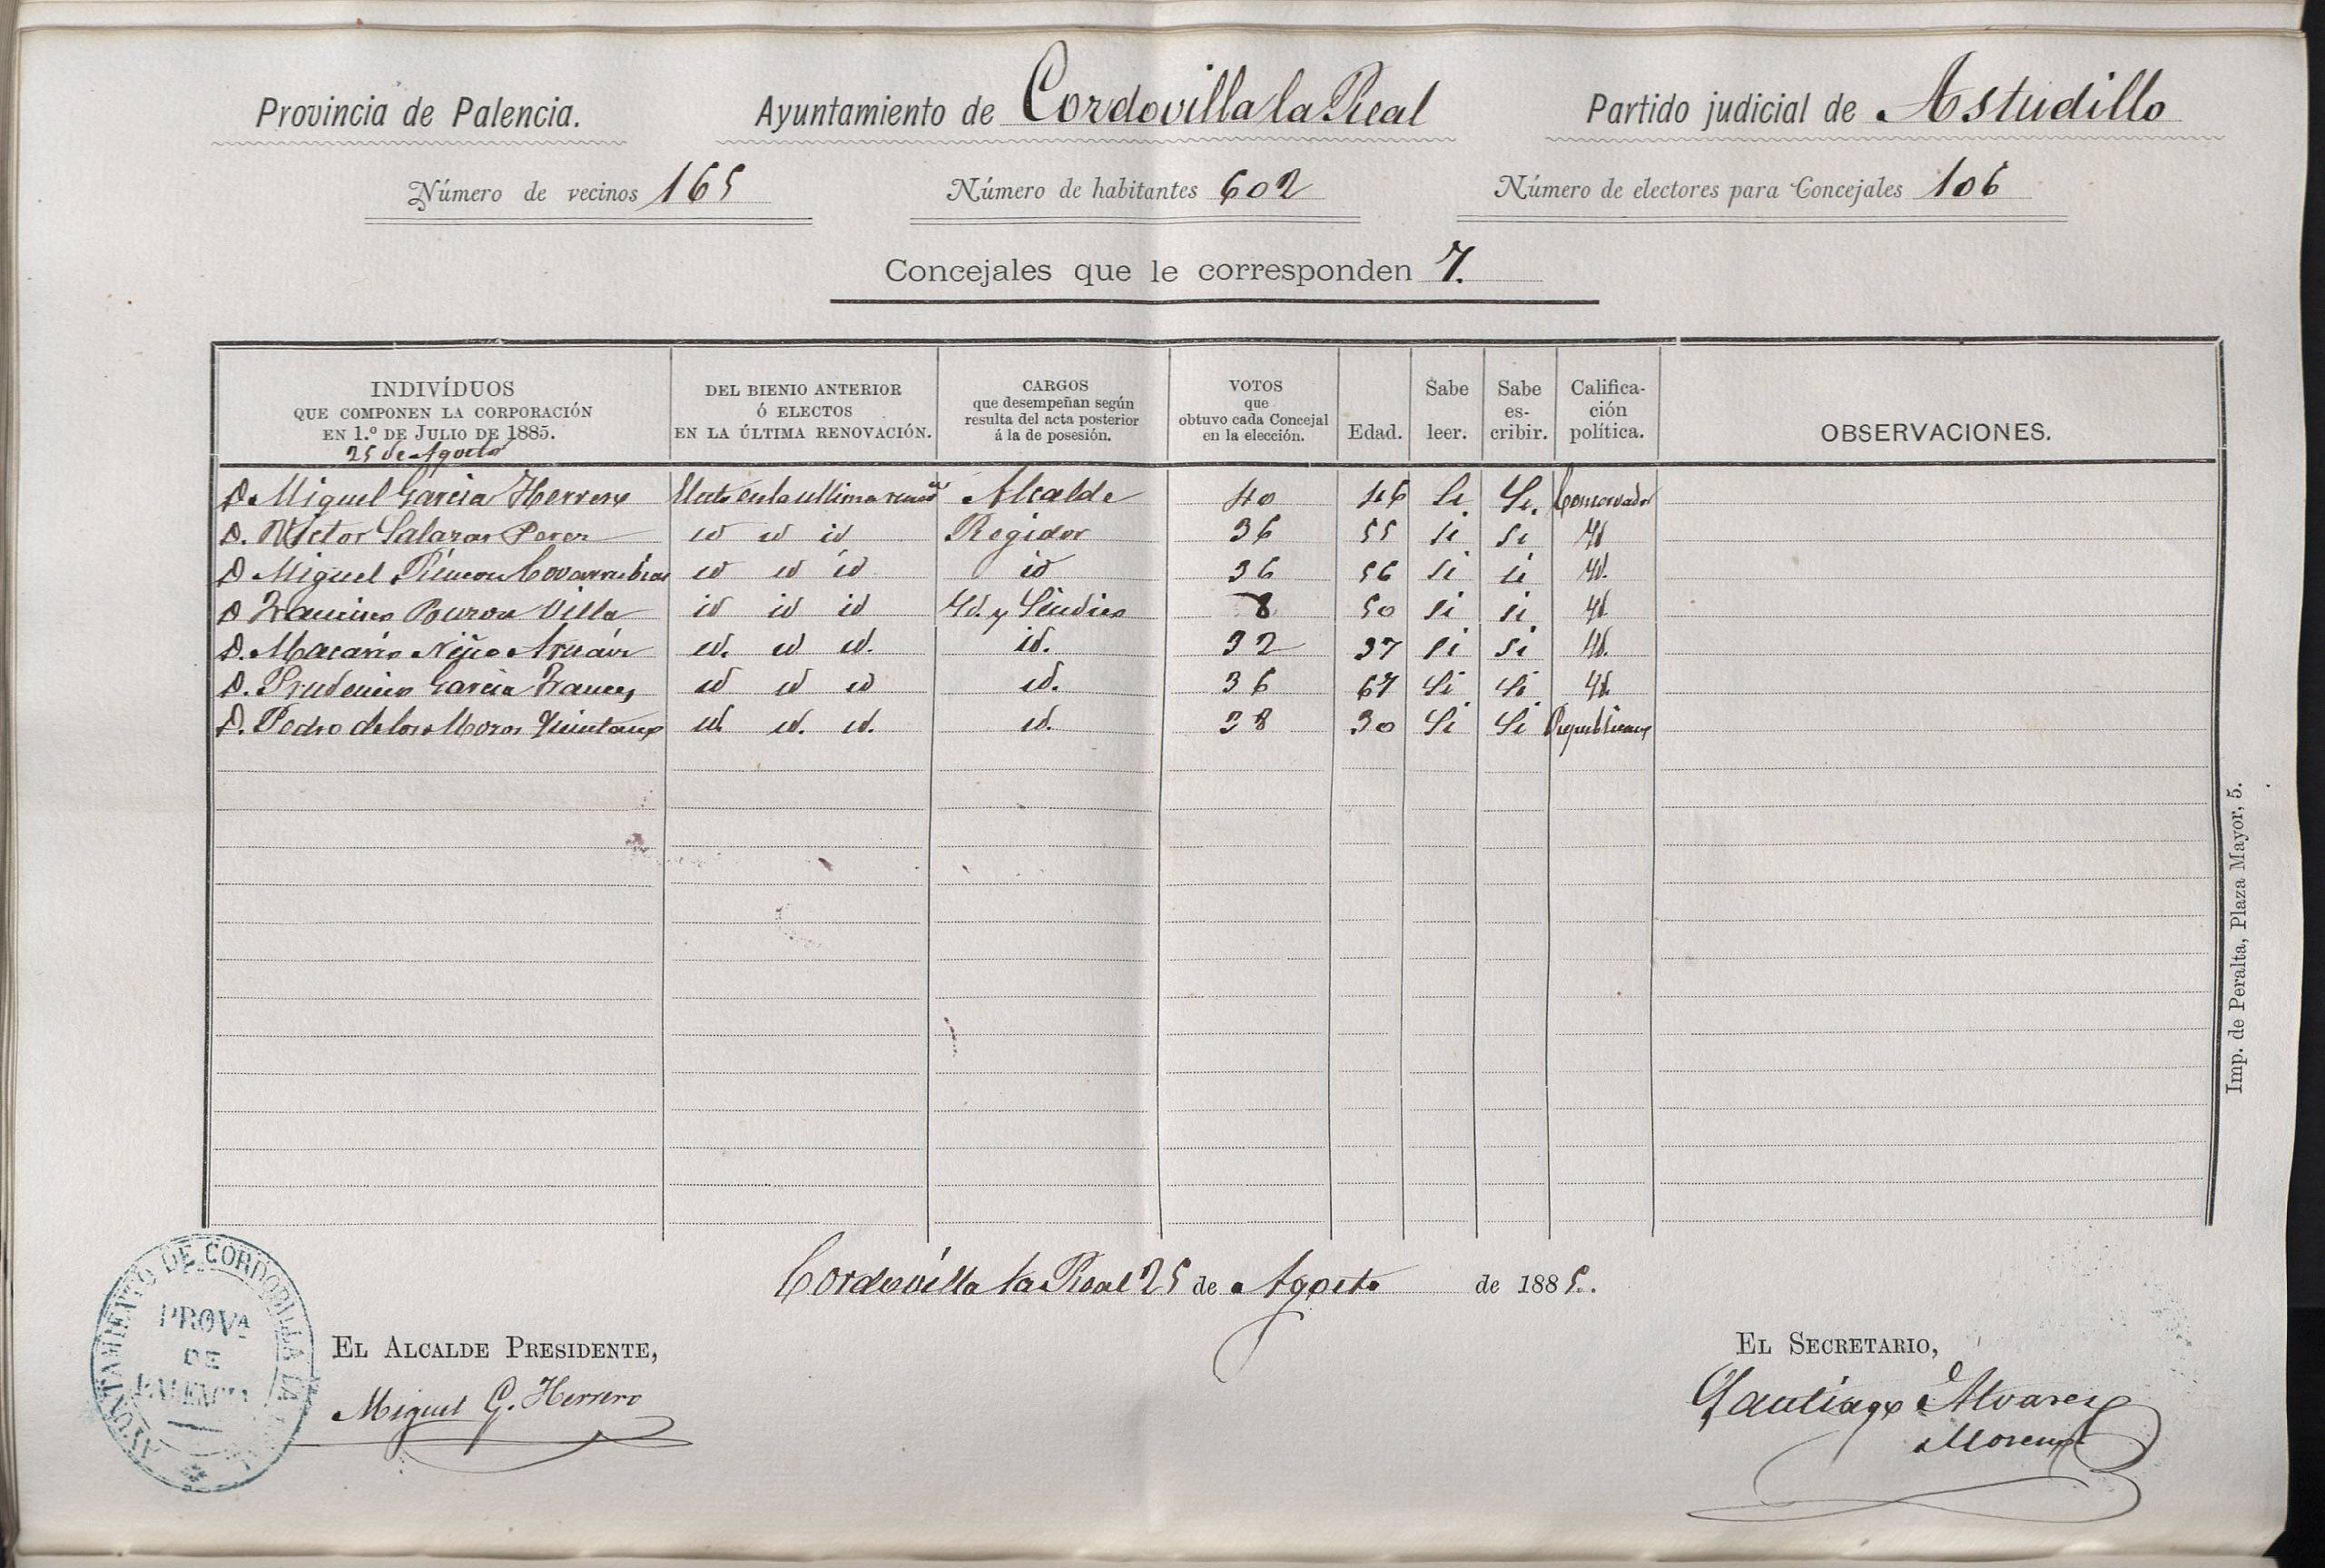 Provincia de Palencia. Ayuntamiento de Cordovilla la Real Partido judicial de Astudillo
Número de vecinos 165 Número de habitantes 602 Número de electores para Concejales 106
Concejales que le corresponden 7.
INDIVÍDUOS QUE COMPONEN LA CORPORACIÓN EN 1.º DE JULIO DE 1885. 25 de Agosto DEL BIENIO ANTERIOR Ó ELECTOS EN LA ÚLTIMA RENOVACIÓN. CARGOS que desempeñan según resulta del acta posterior á la de posesión. VOTOS que obtuvo cada Concejal en la elección. Edad. Sabe leer. Sabe es-cribir. Califica-ción política. OBSERVACIONES.
D. Miguel Garcia Herrero Electo en la ultima renoon Alcalde 40 46 Si Si. Conservador
D. Victor Salazar Perez id id id Regidor 36 55 si si Id
D Miguel Rincon Covarrubias id id id id 36 56 si si Id.
D Francisco Buron Villa id id id Id. y Sindico 8 50 si si Id
D. Macario Niño id. id id. id. 32 37 si si Id.
D. Prudencio Garcia Frances id id id id. 36 67 Si Si Id.
D. Pedro de los Mozos Quintano id. id. id. id. 38 30 Si Si Republicano
Cordovilla la Real 25 de Agosto de 1885.
EL ALCALDE PRESIDENTE,
Miguel G. Herrero
EL SECRETARIO,
Santiago Alvarez
Moreno
AYUNTAMIENTO DE CORDOVILLA LA REAL
PROVA
DE
PALENCIA
Imp. de Peralta, Plaza Mayor, 5.